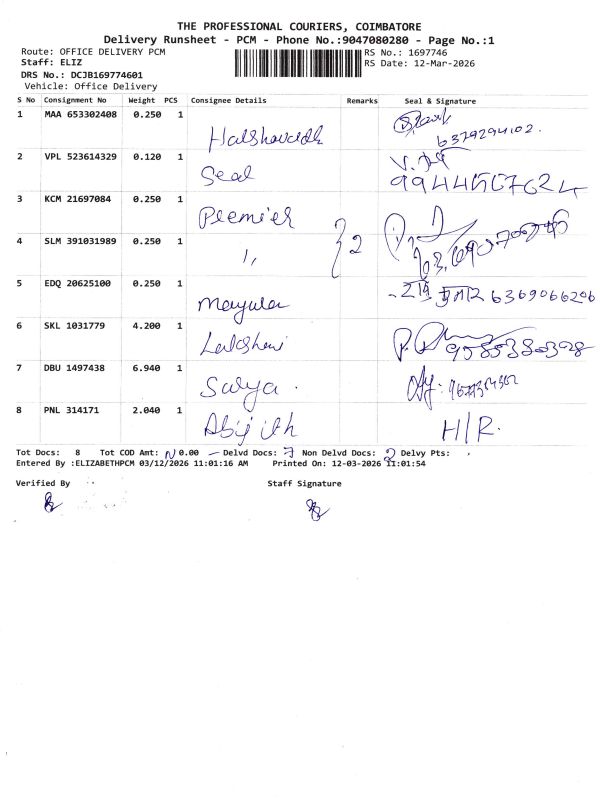 THE PROFESSIONAL COURIERS, COIMBATORE
Delivery Runsheet - PCM - Phone No.:9047080280 - Page No.:1
Route: OFFICE DELIVERY PCM
RS No.: 1697746
Staff: ELIZ
RS Date: 12-Mar-2026
DRS No.: DCJB169774601
Vehicle: Office Delivery
S No Consignment No Weight PCS Consignee Details Remarks Seal & Signature
1 MAA 653302408 0.250 1
6379294102.
2 VPL 523614329 0.120 1 Seal
9944567624
3 KCM 21697084 0.250 1 Premier
4 SLM 391031989 0.250 1 1, } 2
5 EDQ 20625100 0.250 1 6369066206
6 SKL 1031779 4.200 1 Lakshmi
7 DBU 1497438 6.940 1 Surya.
8 PNL 314171 2.040 1 Abijith H/R.
Tot Docs: 8 Tot COD Amt: 0.00 Delvd Docs: 7 Non Delvd Docs: 2 Delvy Pts:
Entered By :ELIZABETHPCM 03/12/2026 11:01:16 AM Printed On: 12-03-2026 11:01:54
Verified By Staff Signature